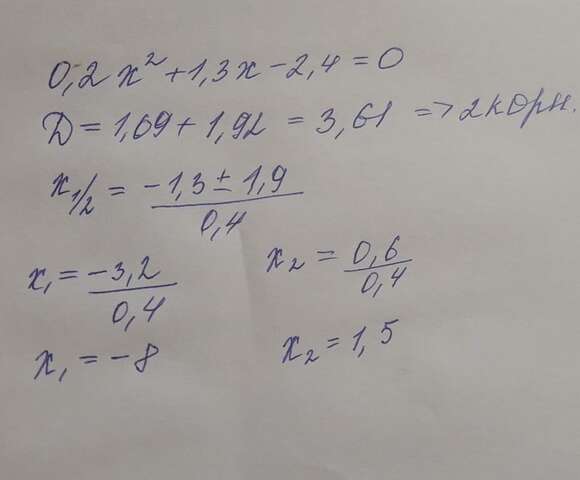 0,2x² + 1,3x - 2,4 = 0
Д = 1,69 + 1,92 = 3,61 => 2 корн.
x₁/₂ = (-1,3 ± 1,9)/0,4
x₁ = -3,2/0,4 x₂ = 0,6/0,4
x₁ = -8 x₂ = 1,5